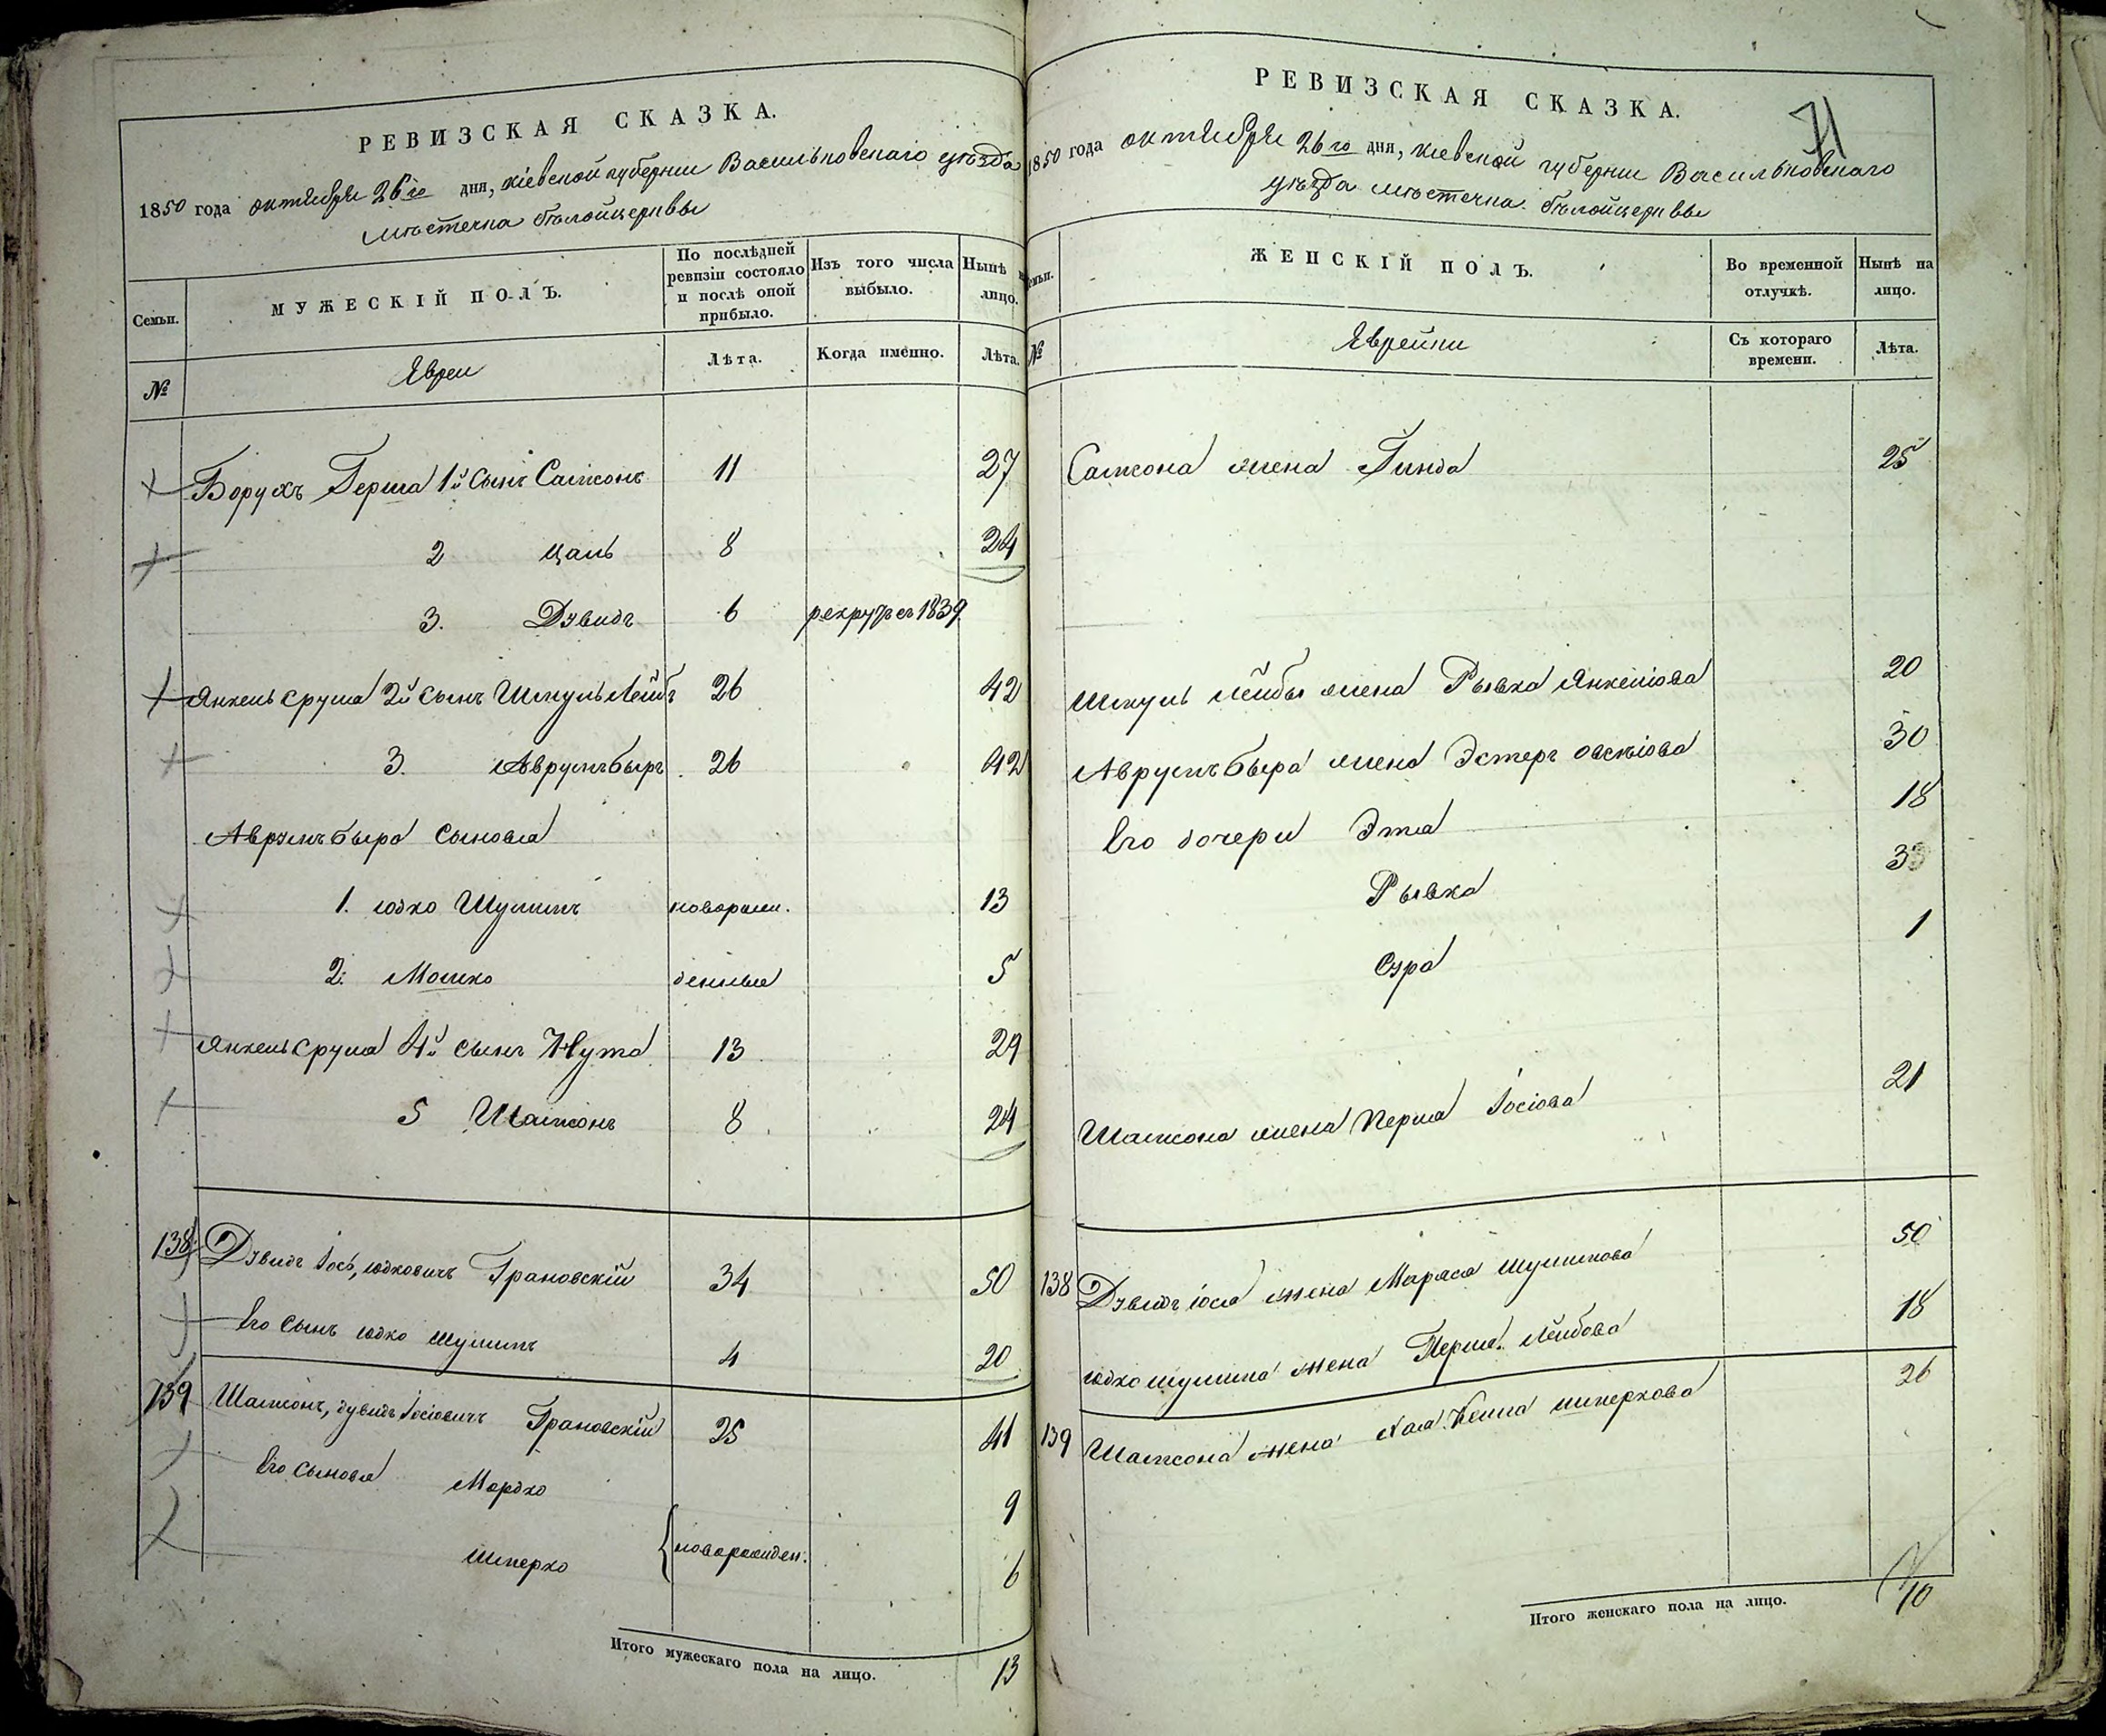 РЕВИЗСКАЯ СКАЗКА.
1850 года октября 26го дня, Кіевской губерніи Васильковскаго уѣзда
мѣстечка Бѣлойцеркви
Семьи.
МУЖЕСКІЙ ПОЛЪ.
По послѣдней ревизіи состояло и послѣ оной прибыло.
Изъ того числа выбыло.
Нынѣ на лицо.
№
Евреи
Лѣта.
Когда именно.
Лѣта.
Борухъ Герша 1й сынъ Самсонъ 11 27
2 Цаль 8 24
3. Дувидъ 6 рекрут. въ 1839.
Янкель Сруля 2й сынъ Шмуль Лейбъ 26 42
3. Аврумъ Быръ 26 42
Аврумъ Быра сыновья
1. Юдко Шулимъ новорож. 13
2. Мошко денные 5
Янкель Сруля 4й сынъ Нута 13 29
5 Шамсонъ 8 24
138 Дувидъ Іось, Юдковичъ Грановскій 34 50
Его сынъ Юдко Шулимъ 4 20
139 Шамсонъ, Дувидъ Іосіовичъ Грановскій 25 41
Его сыновья Мордко 9
Шперко новорожден. 6
Итого мужескаго пола на лицо. 13
РЕВИЗСКАЯ СКАЗКА.
71
1850 года октября 26го дня, Кіевской губерніи Васильковскаго
уѣзда мѣстечка Бѣлойцеркви
Семьи.
ЖЕНСКІЙ ПОЛЪ.
Во временной отлучкѣ.
Нынѣ на лицо.
№
Еврейки
Съ котораго времени.
Лѣта.
Самсона жена Гинда 25
Шмуль Лейбы жена Рывка Янкеліова 20
Аврумъ Быра жена Эстеръ 30
Его дочери Эта 18
Рывка 3
Сура 1
Шамсона жена Перля Іосіова 21
138 Дувидъ Іося жена Маряся Шулимова 50
Юдко Шулима жена Перля Лейбова 18
139 Шамсона жена Хая Шперкова 26
Итого женскаго пола на лицо. 10